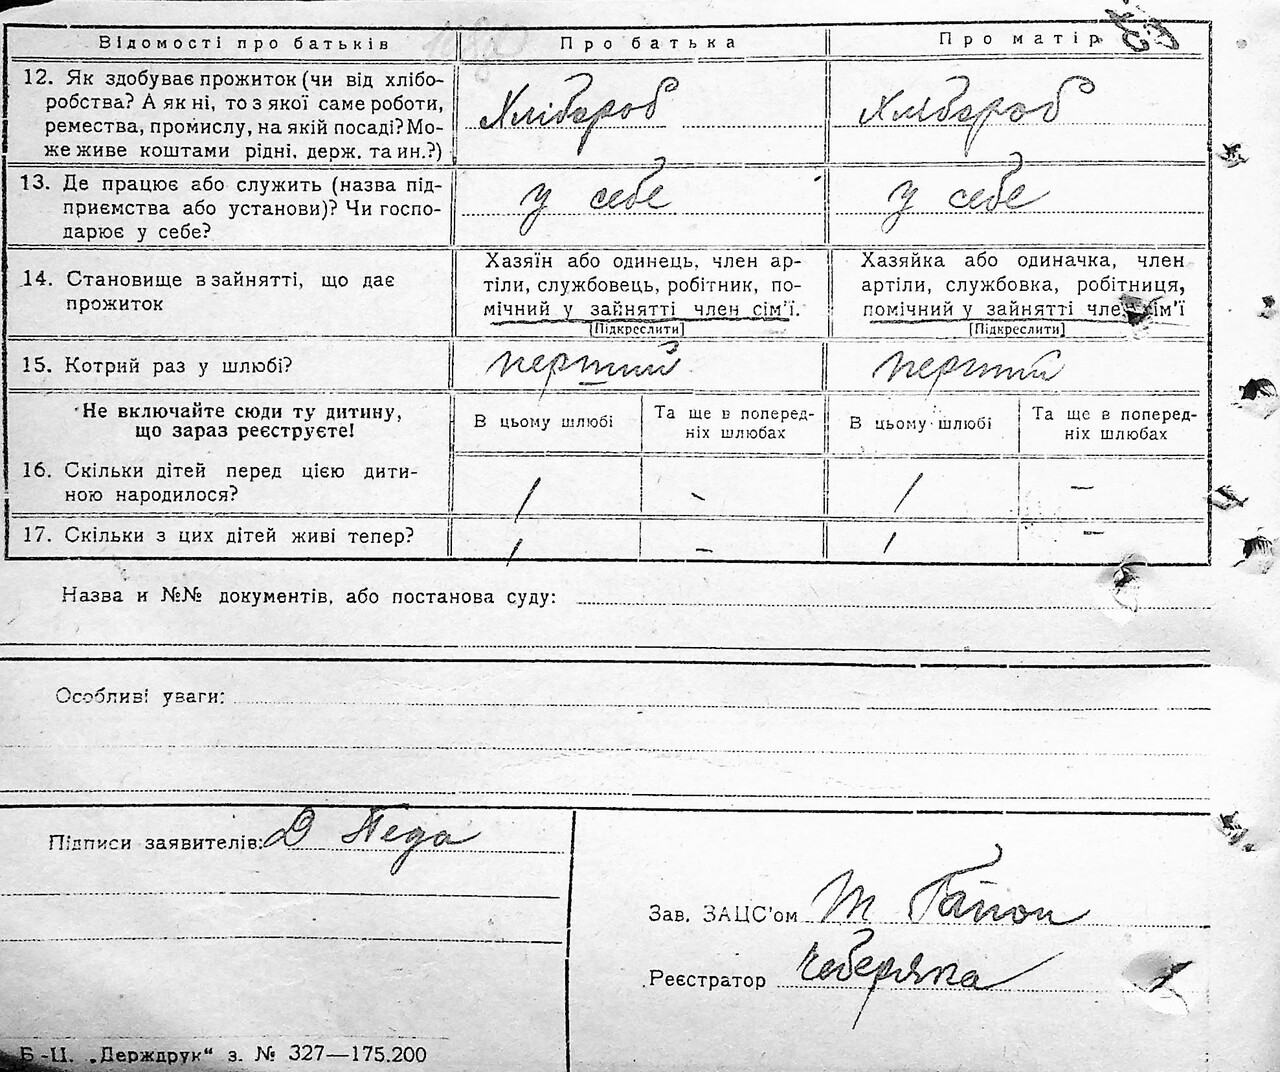 Відомості про батьків Про батька Про матір
12. Як здобуває прожиток (чи від хлібо-
робства? А як ні, то з якої саме роботи,
ремества, промислу, на якій посаді? Мо-
же живе коштами рідні, держ. та ин.?)
Хлібороб Хлібороб
13. Де працює або служить (назва під-
приємства або установи)? Чи госпо-
дарює у себе?
у себе у себе
14. Становище в зайнятті, що дає
прожиток
Хазяїн або одинець, член ар-
тіли, службовець, робітник, по-
мічний у зайнятті член сім'ї.
[Підкреслити]
Хазяйка або одиначка, член
артіли, службовка, робітниця,
помічний у зайнятті член сім'ї
[Підкреслити]
15. Котрий раз у шлюбі? перший перший
Не включайте сюди ту дитину,
що зараз реєструєте!
В цьому шлюбі
Та ще в поперед-
ніх шлюбах
В цьому шлюбі
Та ще в поперед-
ніх шлюбах
16. Скільки дітей перед цією дити-
ною народилося?
1 - 1 -
17. Скільки з цих дітей живі тепер? 1 - 1 -
Назва и №№ документів, або постанова суду:
Особливі уваги:
Підписи заявителів: Д Педа
Зав. ЗАЦС'ом
Реєстратор Чеберяка
Б-Ц. „Держдрук“ з. № 327—175.200